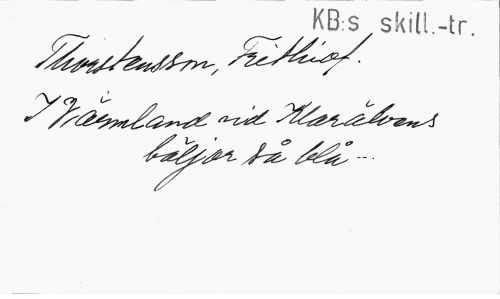 KB:s skill.-tr.
Thorstensson, Frithiof.
I Värmland vid Klarälvens
böljor så blå --